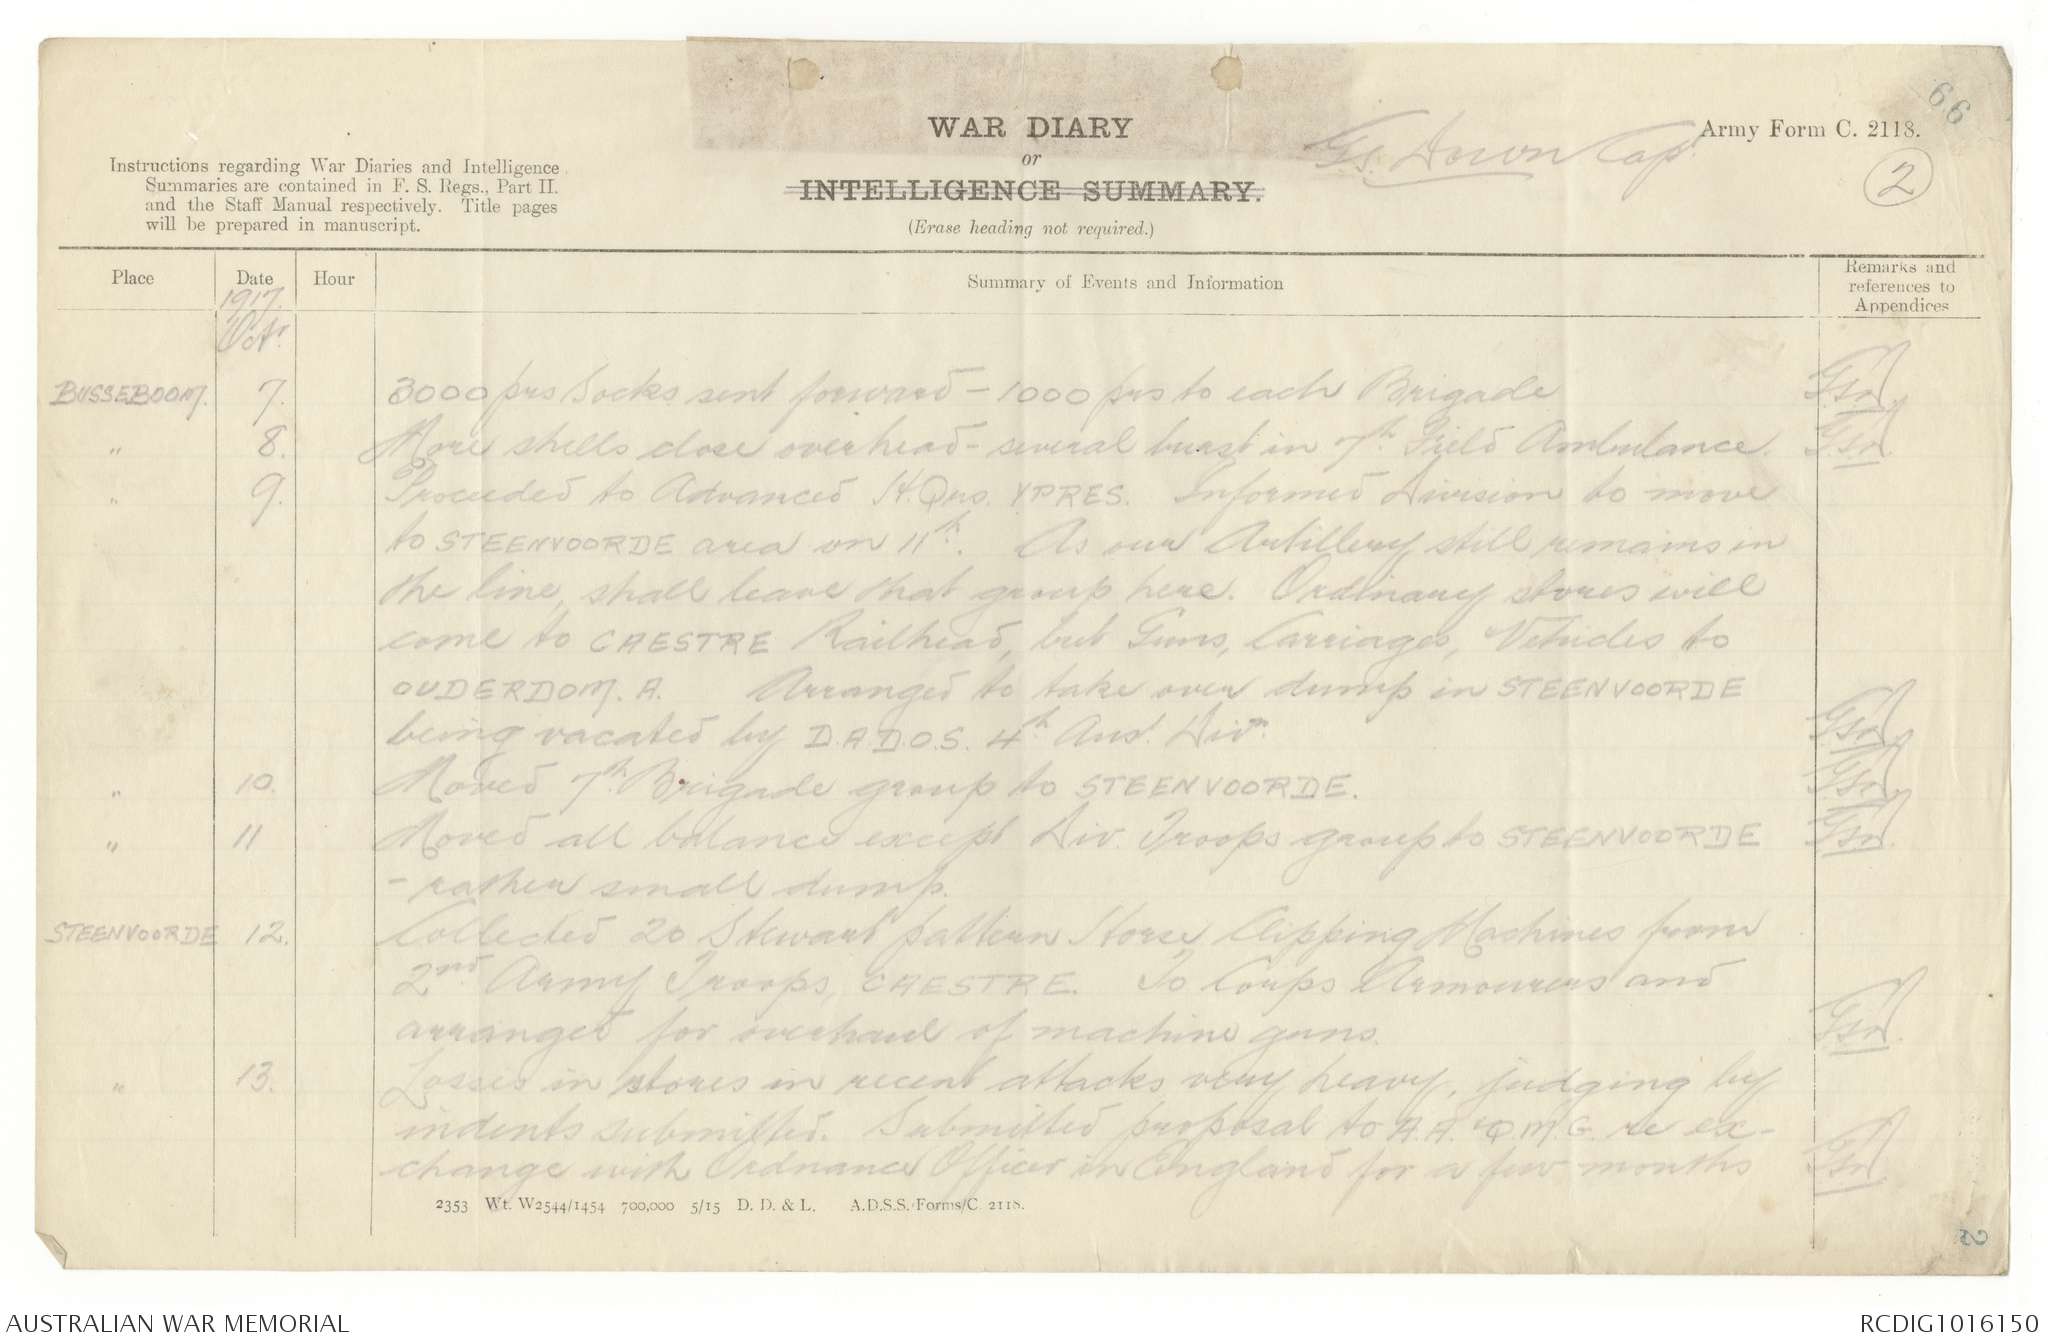 66
WAR DIARY
or
INTELLIGENCE SUMMARY.
(Erase heading not required.)
Army Form C. 2118.
2
Capt.
Instructions regarding War Diaries and Intelligence
Summaries are contained in F. S. Regs., Part II.
and the Staff Manual respectively. Title pages
will be prepared in manuscript.
Place
Date
Hour
Summary of Events and Information
Remarks and
references to
Appendices
1917.
Octr.
BUSSEBOOM. 7. 3000 prs Socks sent forward - 1000 prs to each Brigade
" 8. More shells close overhead - several burst in 7th Field Ambulance.
" 9. Proceeded to Advanced H.Qrs. YPRES. Informed Division to move
to STEENVOORDE area on 11th. As our Artillery still remains in
the line, shall leave that group here. Ordinary stores will
come to CAESTRE Railhead, but Guns, Carriages, Vehicles to
OUDERDOM. A. Arranged to take over dump in STEENVOORDE
being vacated by D.A.D.O.S. 4th Aust. Divn.
" 10. Moved 7th Brigade group to STEENVOORDE.
" 11 Moved all balance except Div. Troops group to STEENVOORDE
- rather small dump.
STEENVOORDE 12. Collected 20 Stewart pattern Horse Clipping Machines from
2nd Army Troops, CAESTRE. To Corps Armourers and
arranged for overhaul of machine guns.
" 13. Losses in stores in recent attacks very heavy, judging by
indents submitted. Submitted proposal to A.A. & Q.M.G. re ex-
change with Ordnance Officer in England for a few months
2353 Wt. W2544/1454 700,000 5/15 D. D. & L. A.D.S.S./Forms/C. 2118.
AUSTRALIAN WAR MEMORIAL
RCDIG1016150